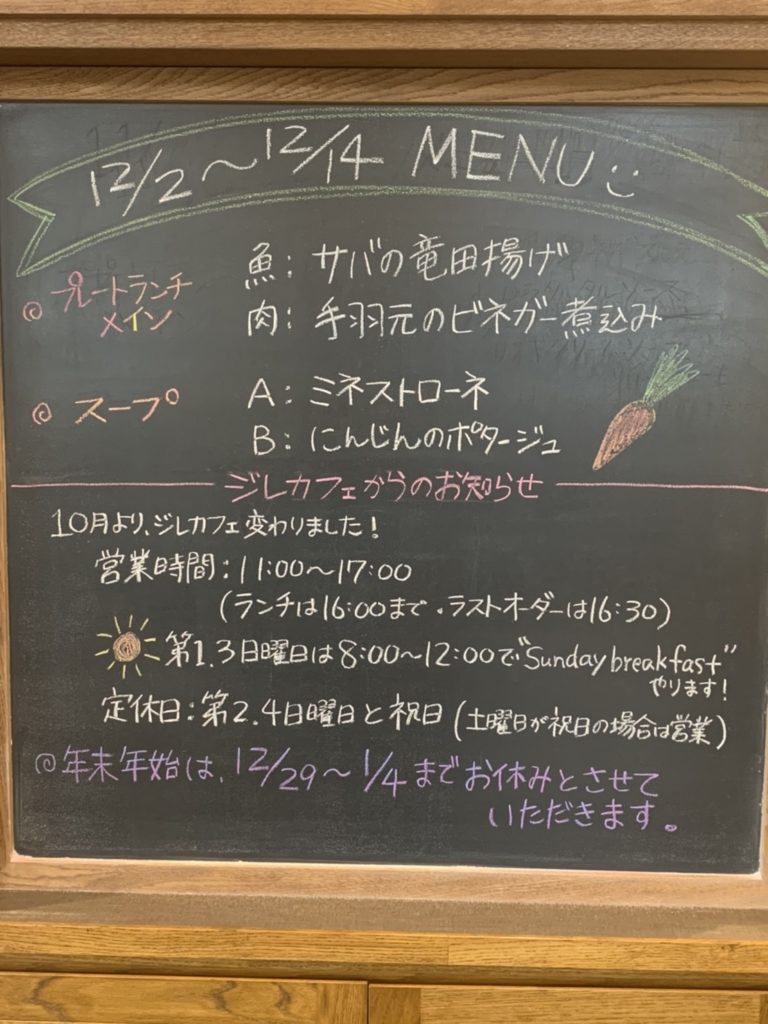 12/2～12/14 MENU
プレートランチ
メイン
魚: サバの竜田揚げ
肉: 手羽元のビネガー煮込み
スープ
A: ミネストローネ
B: にんじんのポタージュ
ジレカフェからのお知らせ
10月より、ジレカフェ変わりました!
営業時間: 11:00～17:00
(ランチは16:00まで・ラストオーダーは16:30)
第1.3日曜日は8:00～12:00で"Sunday breakfast"
やります!
定休日: 第2.4日曜日と祝日(土曜日が祝日の場合は営業)
◎年末年始は、12/29～1/4までお休みとさせて
いただきます。